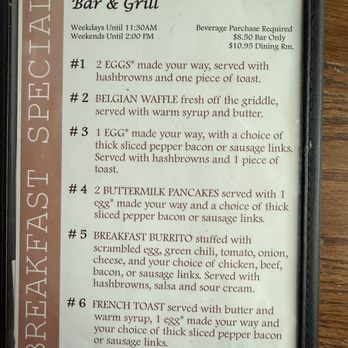 Bar & Grill
Weekdays Until 11:30AM
Weekends Until 2:00 PM
Beverage Purchase Required
$8.50 Bar Only
$10.95 Dining Rm.
BREAKFAST SPECIAL
#1 2 EGGS* made your way, served with
hashbrowns and one piece of toast.
#2 BELGIAN WAFFLE fresh off the griddle,
served with warm syrup and butter.
#3 1 EGG* made your way, with a choice of
thick sliced pepper bacon or sausage links.
Served with hashbrowns and 1 piece of
toast.
#4 2 BUTTERMILK PANCAKES served with 1
egg* made your way and a choice of thick
sliced pepper bacon or sausage links.
#5 BREAKFAST BURRITO stuffed with
scrambled egg, green chili, tomato, onion,
cheese, and your choice of chicken, beef,
bacon, or sausage links. Served with
hashbrowns, salsa and sour cream.
#6 FRENCH TOAST served with butter and
warm syrup, 1 egg* made your way and
your choice of thick sliced pepper bacon
or sausage links.